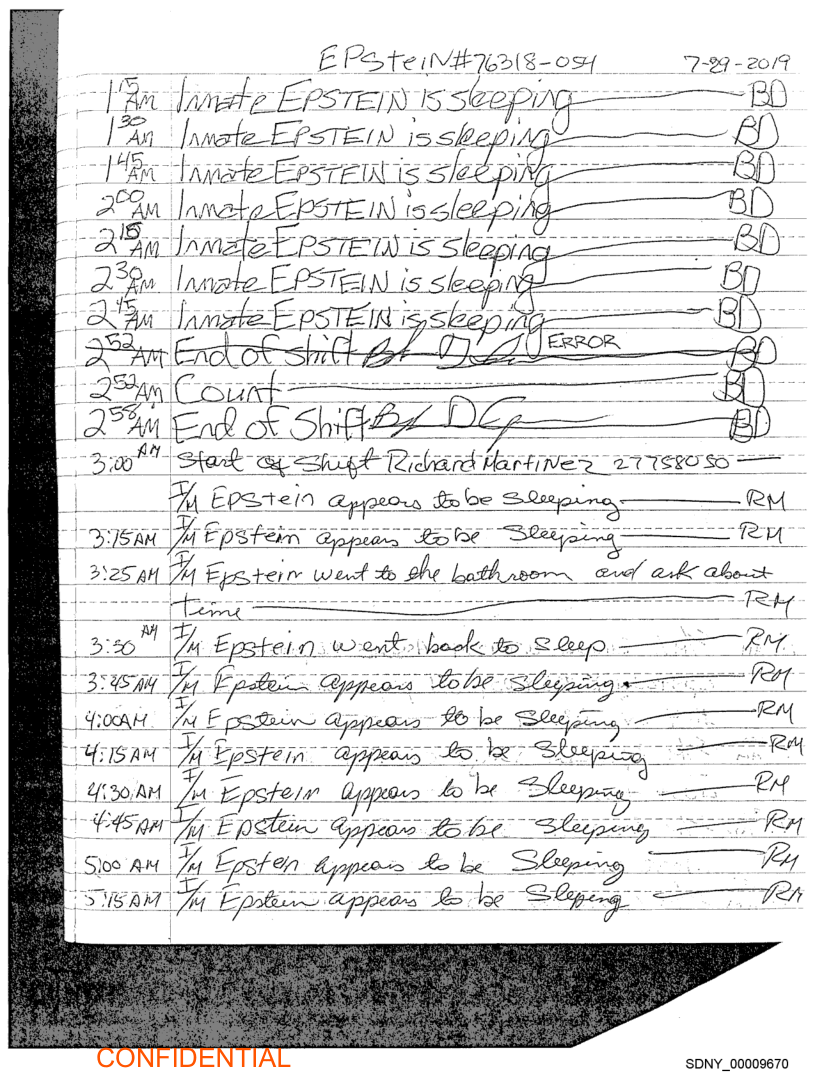 EPSteiN#76318-054 7-29-2019
1 15 AM Inmate EPSTEIN is sleeping BD
1 30 AM Inmate EPSTEIN is sleeping BD
1 45 AM Inmate EPSTEIN is sleeping BD
2 00 AM Inmate EPSTEIN is sleeping BD
2 15 AM Inmate EPSTEIN is sleeping BD
2 30 AM Inmate EPSTEIN is sleeping BD
2 45 AM Inmate EPSTEIN is sleeping BD
2 52 AM End of Shift ERROR BD
2 52 AM Count BD
2 58 AM End of Shift BD
3:00 AM Start of Shift Richard Martinez 27758050
I/M EPStein appears to be Sleeping RM
3:15 AM I/M Epstein appears to be Sleeping RM
3:25 AM I/M Epstein went to the bathroom and ask about
time RM
3:30 AM I/M Epstein went back to sleep RM
3:45 AM I/M Epstein appears to be Sleeping. RM
4:00AM I/M Epstein appears to be Sleeping RM
4:15 AM I/M Epstein appears to be Sleeping RM
4:30 AM I/M Epstein appears to be Sleeping RM
4:45 AM I/M Epstein appears to be Sleeping RM
5:00 AM I/M Epsten appears to be Sleeping RM
5:15 AM I/M Epstein appears to be Sleping RM
CONFIDENTIAL
SDNY_00009670